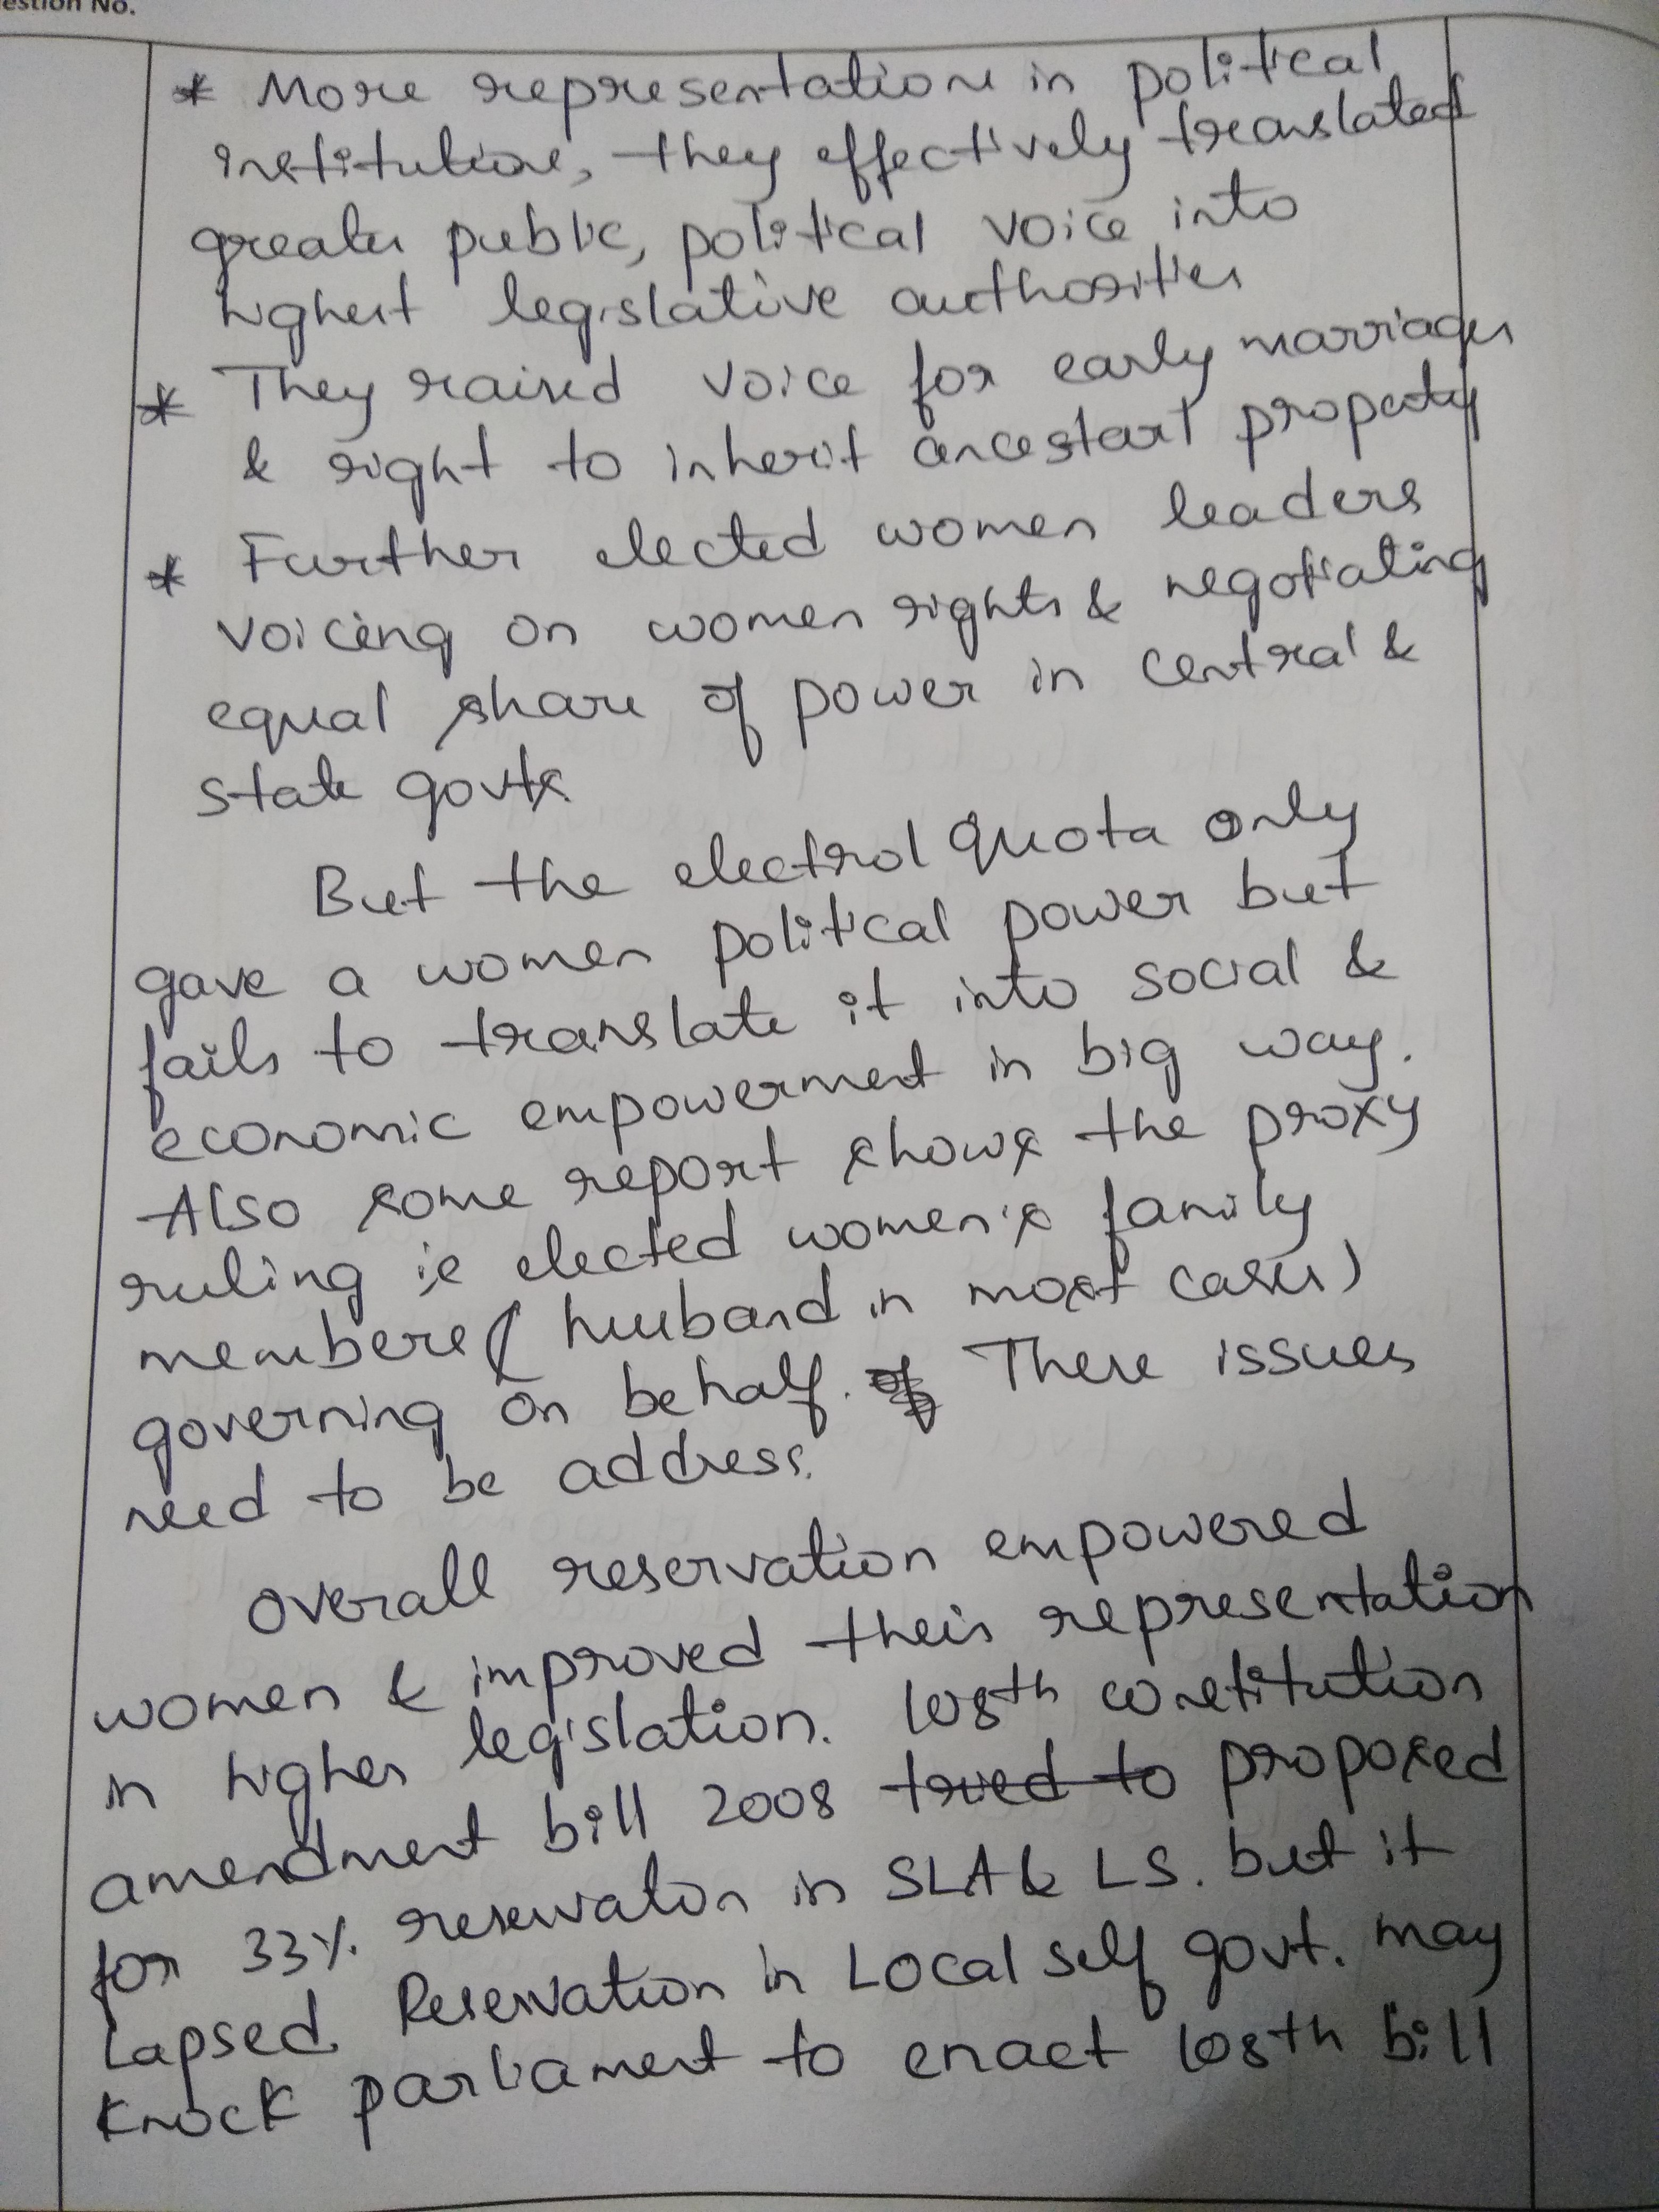 estion No.
* More representation in political
institution, they effectively translated
greater public, political voice into
highest legislative authorities
* They raised voice for early marriages
& right to inherit ancestart property
* Further elected women leaders
voicing on women rights & negotiating
equal share of power in central &
state govts
But the electrol quota only
gave a women political power but
fails to translate it into social &
economic empowerment in big way.
Also some report shows the proxy
ruling ie elected women's family
members (husband in most cases)
governing on behalf. of These issues
need to be address.
Overall reservation empowered
women & improved their representation
in higher legislation. 108th constitution
amendment bill 2008 tried to proposed
for 33% reservaton in SLA & LS. but it
Lapsed. Reservation in Local self govt. may
knock parliament to enact 108th bill